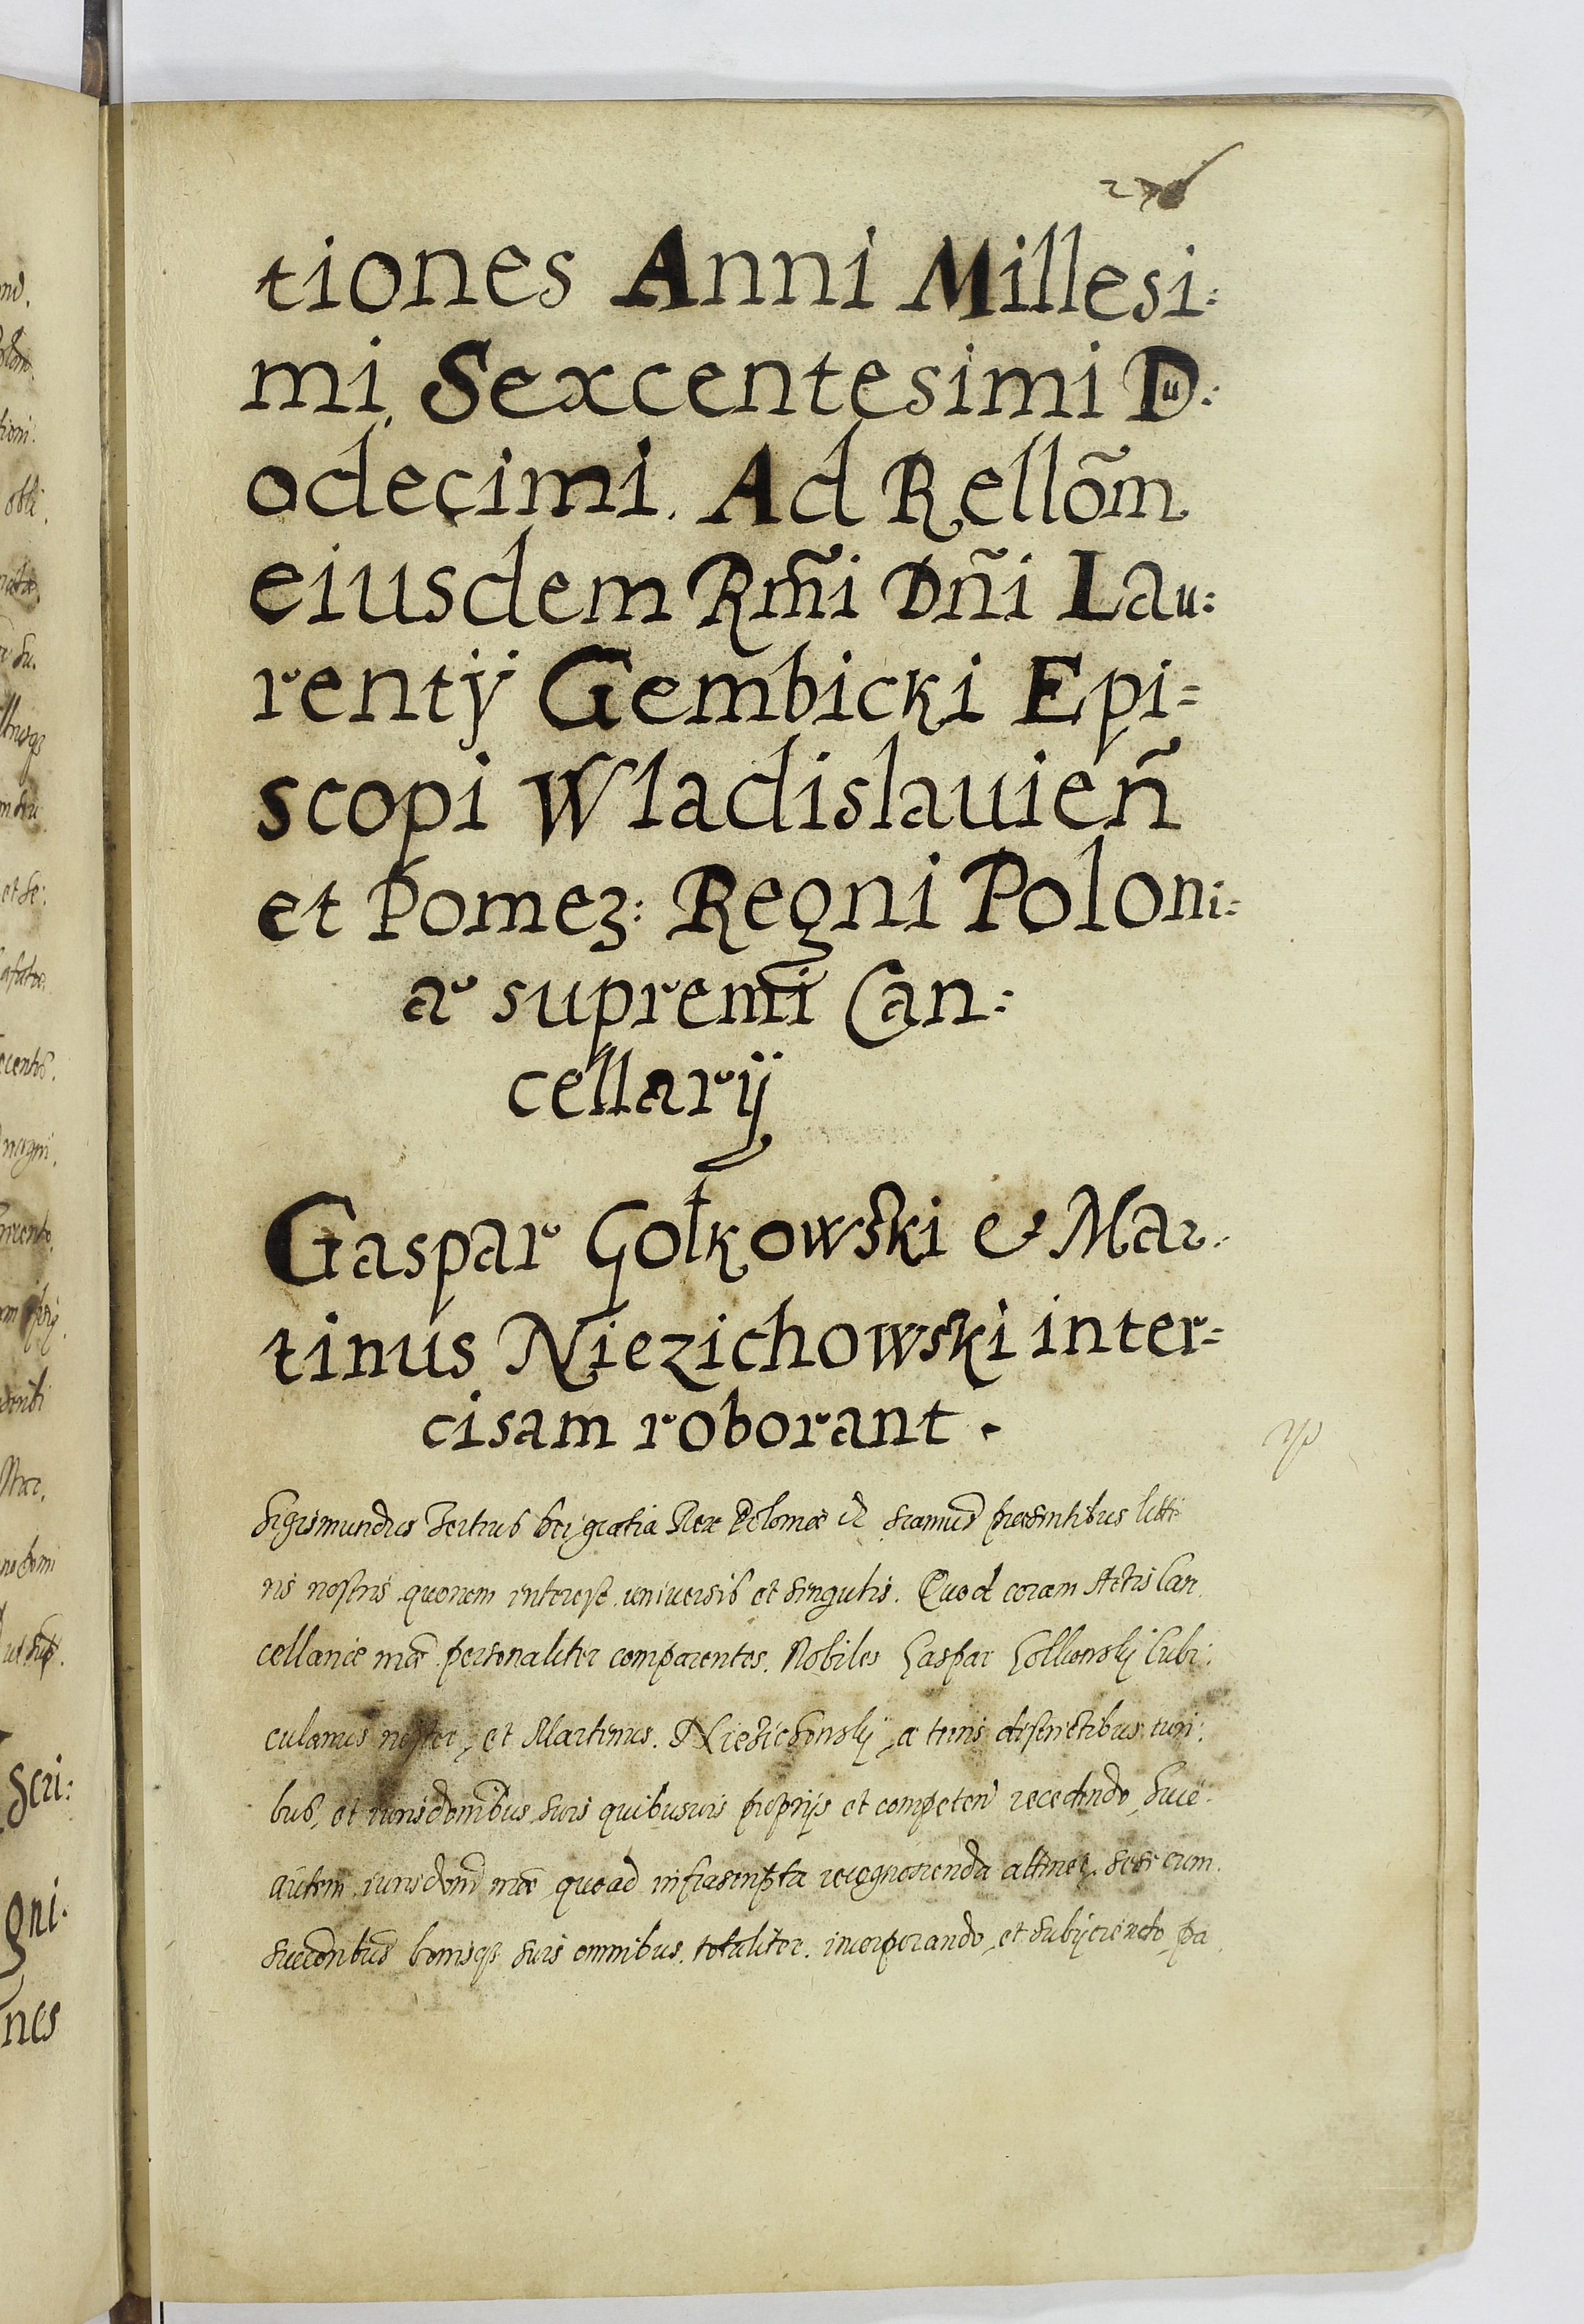 tiones Anni Millesi:
mi Sexcentesimi Du:
odecimi. Ad Rellõm
eiusdem Rm̃i Dñi Lau:
rentÿ Gembicki Epi=
scopi Wladislauieñ
et Pomez: Regni Poloni=
ar supremi Can:
cellarij
Gaspar Gołkowski et Mar:
tinus Niezichowski inter=
cisam roborant.
Sigismundus Tertius Dei gratia Rex Poloniæ &c. præsentibus litte
ris nostris quorum interest universis et singulis. Quod coram Actis Can
cellariæ personaliter comparentes. Nobiles Gaspar Golkowskij Cubi:
cularius noster, et Martinus Niezichowskij, a terris districtibus iuri:
bus, et quibusvis proprijs et competeñ recedendo,
autem quoad infrascripta recognoscenda attinet, sese cum
bonisq; suis omnibus totaliter incorporando, et subijciendo, pa